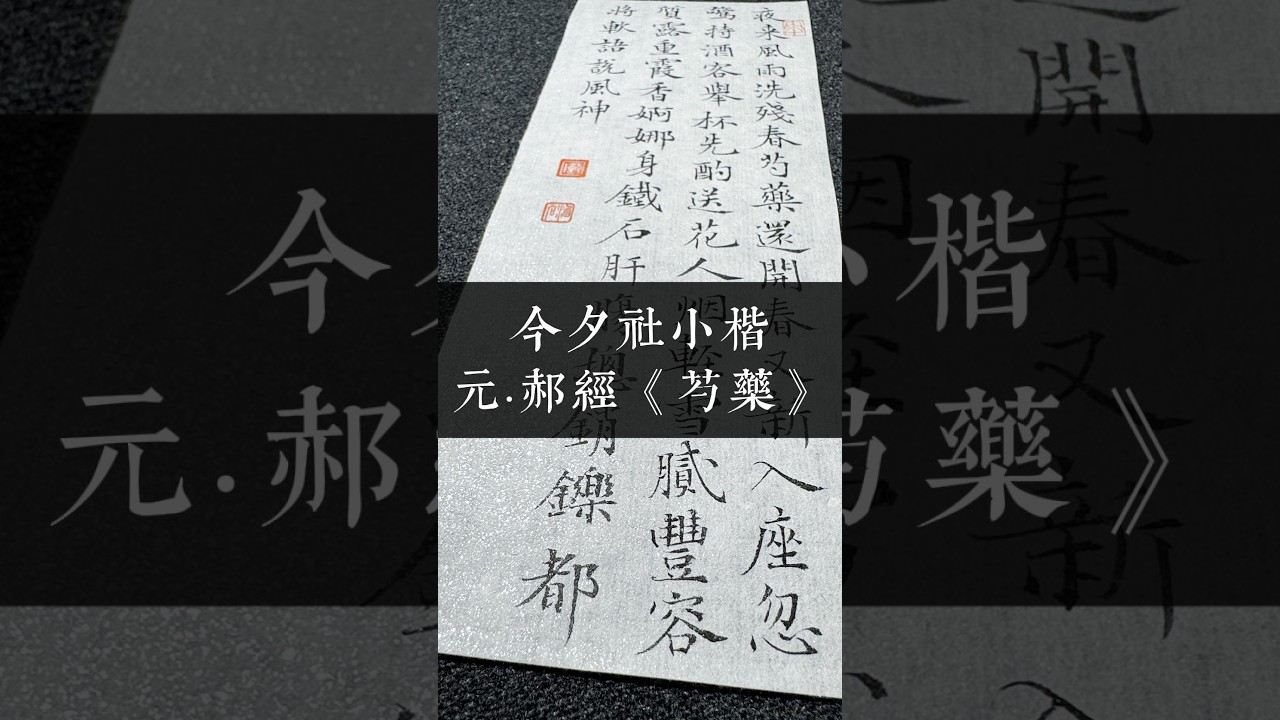 今夕社小楷
元.郝經《芍藥》
夜来風雨洗殘春芍藥還開春又新入座忽
驚持酒客舉杯先酌送花人烟輕雪膩豐容
質露重霞香婀娜身鐵石肝腸總銷鑠都
將軟語説風神